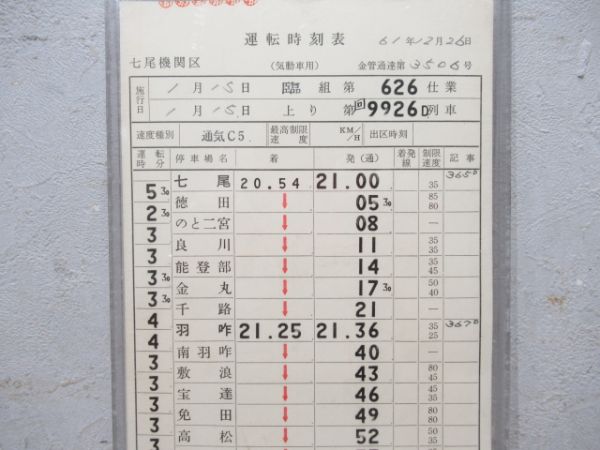 運転時刻表
61年12月26日
七尾機関区
(気動車用)
金管通達第3506号
施行日
1月15日 臨組第 626 仕業
1月15日 上り 第 回9926D 列車
速度種別 通気C5 最高制限速度 KM/H 出区時刻
運転時分 停車場名 着 発(通) 着発線 制限速度 記事
七尾 20.54 21.00 35
5 30 徳田 ↓ 05 30 85 80
2 30 のと二宮 ↓ 08 —
3 良川 ↓ 11 35 35
3 能登部 ↓ 14 35 45
3 30 金丸 ↓ 17 30 50 40
3 30 千路 ↓ 21 —
4 羽咋 21.25 21.36 35 25
4 南羽咋 ↓ 40 —
3 敷浪 ↓ 43 80 45
3 宝達 ↓ 46 45
3 免田 ↓ 49 80 80
3 高松 ↓ 52 50 35